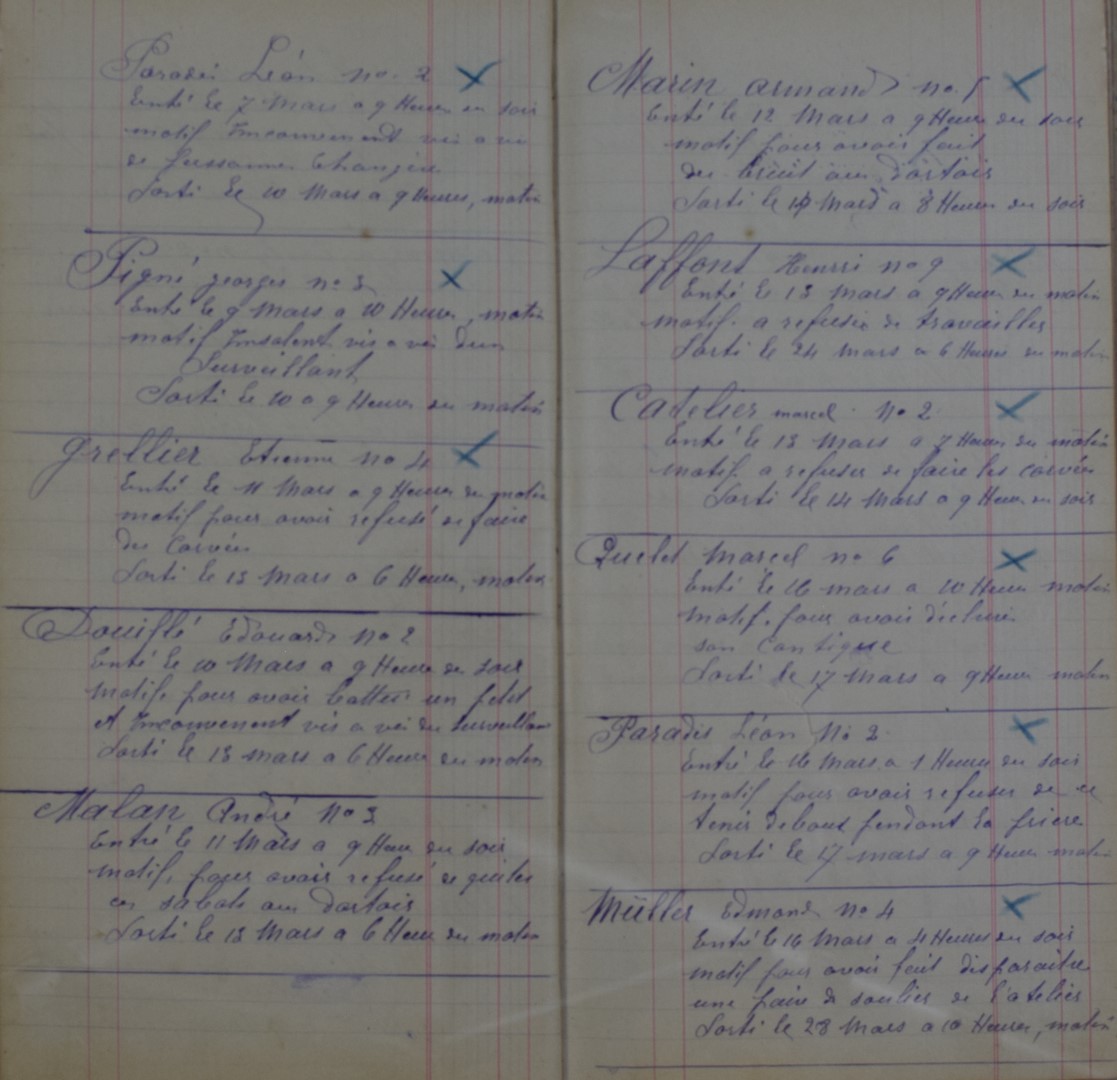 Paradis Léon no. 2
Entré le 7 Mars a 9 Heures du soir
motif Inconvenent vis a vis
de personnes Etrangère
Sorti le 10 Mars a 9 Heures, matin
Pigné georges no 3
Entré le 9 Mars a 10 Heures, matin
motif Insolent vis a vis d'un
Surveillant
Sorti le 10 a 9 Heures du matin
grellier Etienne no 4
Entré le 11 Mars a 9 Heures du matin
motif pour avoir refusé de faire
des Corvées
Sorti le 13 Mars a 6 Heures, matin
Douiflé Edouard no 2
Entré le 10 Mars a 9 Heures du soir
motif, pour avoir battu un petit
et Inconvenent vis a vis du surveillant
Sorti le 13 mars a 6 Heures du matin
Malan André no 3
Entré le 11 Mars a 9 Heures du soir
motif, pour avoir refusé de quitter
ces sabots au Dortois
Sorti le 13 Mars a 6 Heures du matin
Marin armand no. 5
Entré le 12 Mars a 9 Heures du soir
motif pour avoir fait
du bruit au dortois
Sorti le Mars a 8 Heures du soir
Laffont Henrri no 9
Entré le 13 Mars a 9 Heures du matin
motif. a refusée de travailler
Sorti le 24 mars a 6 Heures du matin
Catelier marcel no 2
Entré le 13 Mars a 7 Heures du matin
motif. a refuser de faire les corvées
Sorti le 14 Mars a 9 Heures du soir
Quelet Marcel no 6
Entré le 16 mars a 10 Heures matin
motif. pour avoir déchiré
son Cantique
Sorti le 17 Mars a 9 Heures matin
Paradis Léon No 2
Entré le 16 Mars a 1 Heures du soir
motif pour avoir refuser de ce
tenir debout pendant la prière
Sorti le 17 mars a 9 Heures matin
Müller Edmond No 4
Entré le 16 Mars a 4 Heures du soir
motif pour avoir fait disparaitre
une paire de soulier de l'atelier
Sorti le 28 Mars a 10 Heures, matin